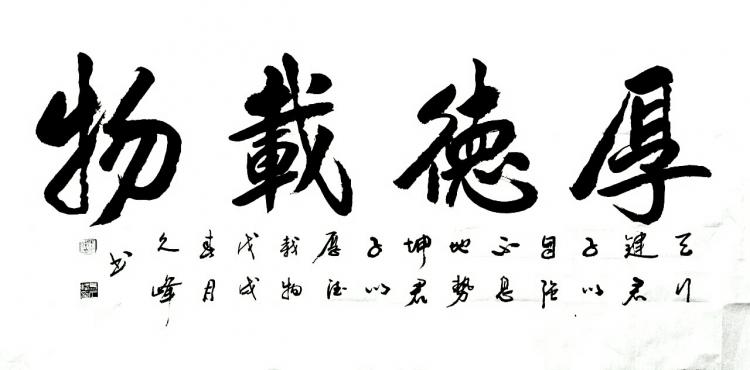 厚德載物
天行
健君
子以
自强
不息
地勢
坤君
子以
厚德
载物
戊戌
春月
久峰
书